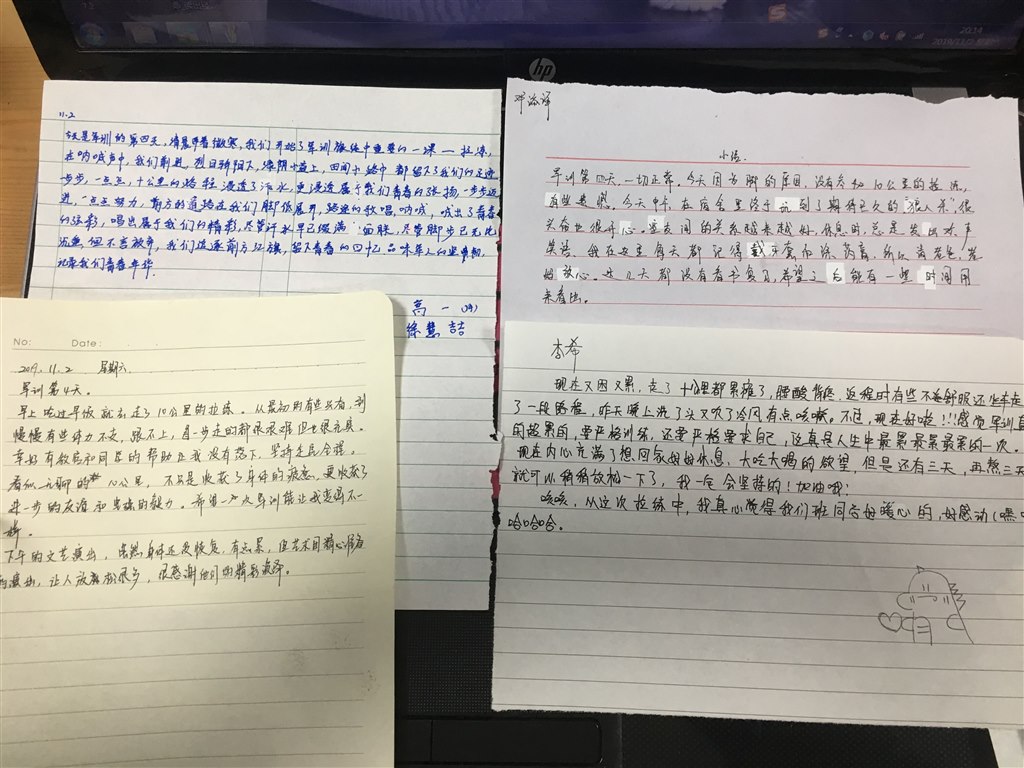 20:14
hp
11.2
今天是军训的第四天，清晨带着微寒，我们开始了军训旅途中重要的一课——拉练。
在呐喊声中，我们前进，烈日骄阳下，绿阴小道上，田间小路中都留下了我们的足迹
步步，一点点，十公里的路程浸透了汗水，更浸透属于我们青春的张扬，一步步迈
进，一点点努力，前方的道路在我们脚底展开，路途的歌唱，呐喊，喊出了青春
的弦彩，唱出属于我们的精彩，尽管汗水早已缀满面颊，尽管脚步已无比
沉重，但不言放弃，我们追逐前方红旗，留下青春的回忆，品味军人的坚毅，
记录我们青春年华
高一
徐慧喆
邓添译
小语
军训第四天，一切正常。今天因为脚的原因，没有参加10公里的拉练，
有些遗憾。今天中午，在宿舍里终于玩到了期待已久的“狼人杀”，很
兴奋也很开心。室友间的关系越来越好，休息时总是发出欢声
笑语。我在这里每天都记得戴牙套和涂药膏，所以请老爸、老
妈放心。这几天都没有看书复习，希望之后能有一些时间用
来看书。
No: Date:
2019.11.2 星期六
军训第4天。
早上吃过早饭就去走了10公里的拉练。从最初的有些兴奋，到
慢慢有些体力不支，跟不上，每一步走的都很艰难但也很充实。
幸好有教官和同学的帮助让我没有落下，坚持走完全程。
看似无聊的 公里，不只是收获了身体的疲惫，更收获了
进一步的友谊和坚强的毅力。希望这次军训能让我变得不一
样。
下午的文艺演出，虽然身体还没恢复，有点累，但艺术团精心准备
的演出，让人放松很多，很感谢他们的精彩演绎。
李希
现在又困又累，走了十公里都累瘫了，腰酸背疼，返程时有些不舒服还坐车走
了一段路程，昨天晚上洗了头又吹了冷风有点咳嗽。不过，现在好啦！！！感觉军训真
的超累的，要严格训练，还要严格要求自己，这真是人生中最累最累最累的一次。
现在内心充满了想回家好好休息、大吃大喝的欲望，但是还有三天，再熬三天
就可以稍稍放松一下了，我一定会坚持的！加油哦！
咳咳，从这次拉练中，我真心觉得我们班同学好暖心的，好感动（嘿
哈哈哈。